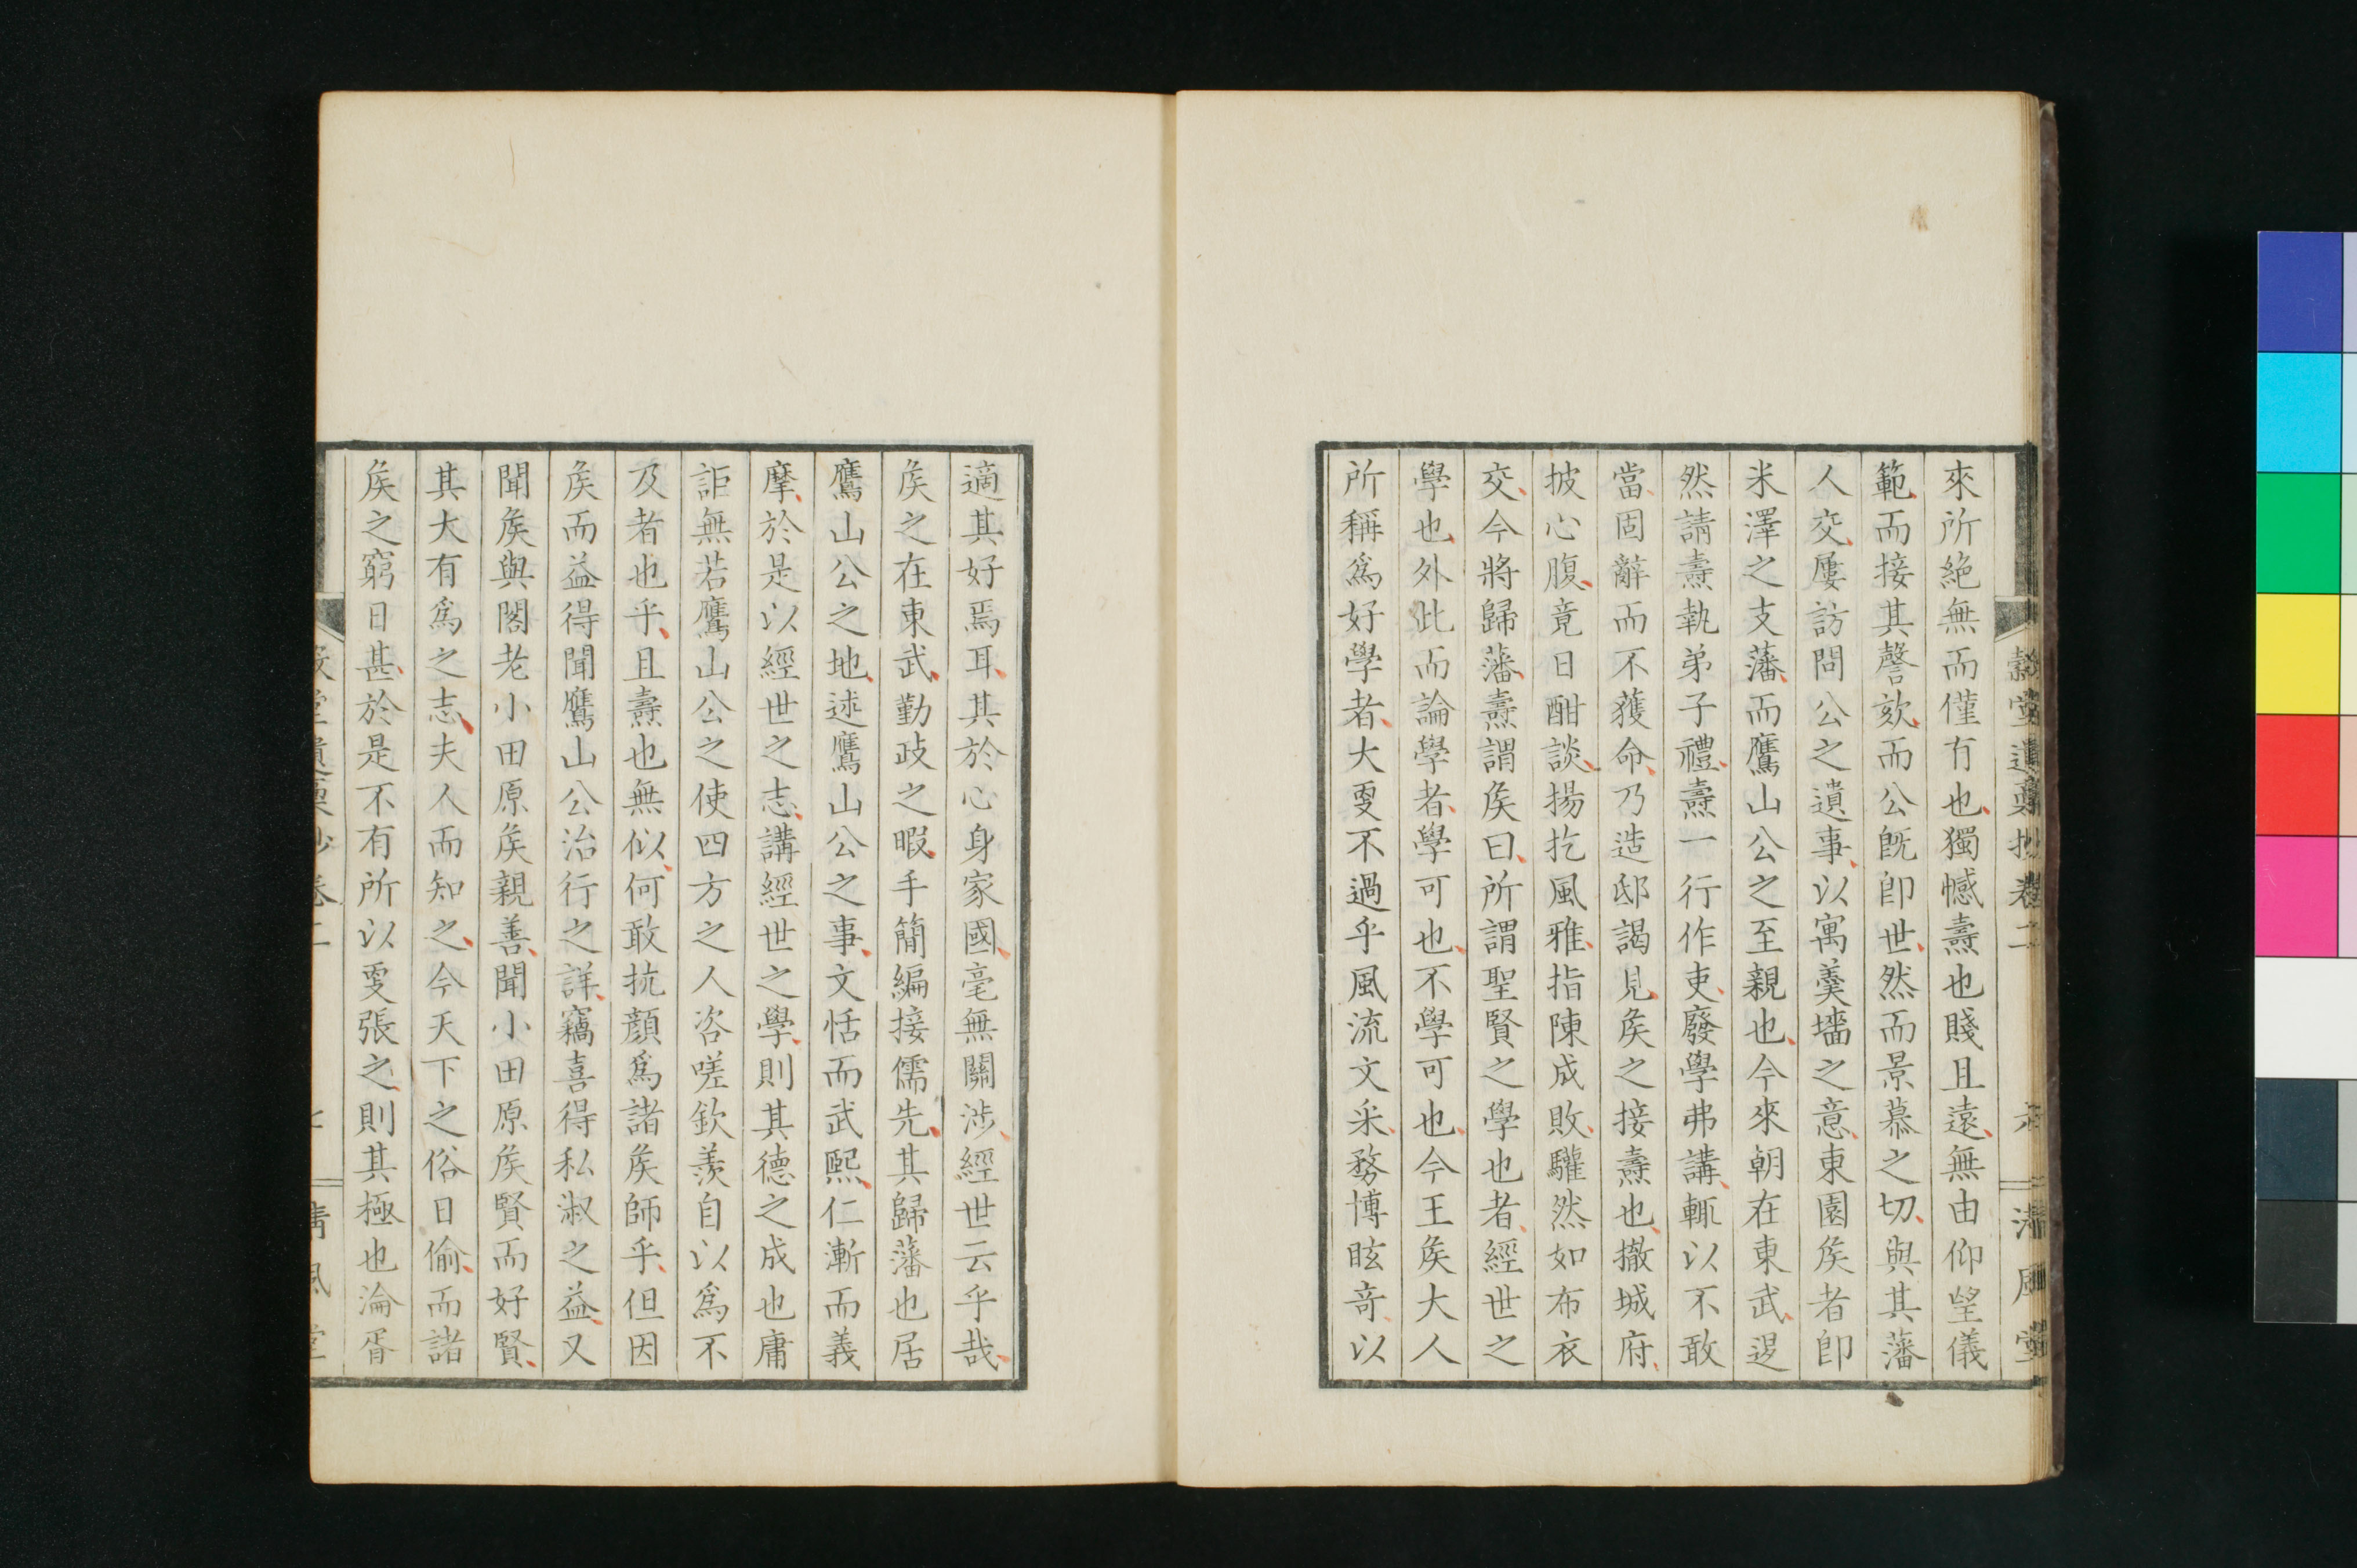 來所絶無而僅有也獨憾燾也賤且遠無由仰望儀
範而接其謦欬而公既卽世然而景慕之切與其藩
人交屢訪問公之遺事以寓羹墻之意東園矦者卽
米澤之支藩而鷹山公之至親也今來朝在東武逕
然請燾執弟子禮燾一行作吏廢學弗講輒以不敢
當固辭而不獲命乃造邸謁見矦之接燾也撤城府
披心腹竟日酣談揚扢風雅指陳成敗驩然如布衣
交今將歸藩燾謂矦曰所謂聖賢之學也者經世之
學也外此而論學者學可也不學可也今王矦大人
所稱爲好學者大要不過乎風流文采務博眩竒以
適其好焉耳其於心身家國毫無關涉經世云乎哉
矦之在東武勤政之暇手簡編接儒先其歸藩也居
鷹山公之地述鷹山公之事文恬而武熙仁漸而義
摩於是以經世之志講經世之學則其德之成也庸
詎無若鷹山公之使四方之人咨嗟欽羨自以爲不
及者也乎且燾也無似何敢抗顔爲諸矦師乎但因
矦而益得聞鷹山公治行之詳竊喜得私淑之益又
聞矦與閣老小田原矦親善聞小田原矦賢而好賢
其大有爲之志夫人而知之今天下之俗日偷而諸
矦之窮日甚於是不有所以要張之則其極也淪胥